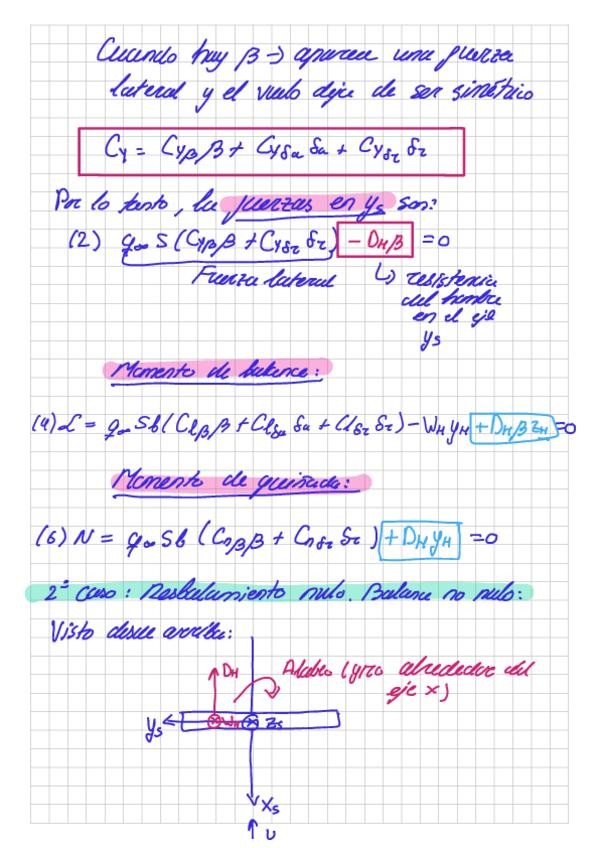 Cuando hay β → aparece una fuerza
lateral y el vuelo deja de ser simétrico
Cy = Cyβ β + Cyδa δa + Cyδr δr
Por lo tanto, las fuerzas en ys son:
(2) q∞ S (Cyβ β + Cyδr δr) - DH β = 0
Fuerza lateral ↳ resistencia
del hombre
en el eje
ys
Momento de balance:
(4) L = q∞ S b (Clβ β + Clδa δa + Clδr δr) - WH yH + DH β zH = 0
Momento de guiñada:
(6) N = q∞ S b (Cnβ β + Cnδr δr) + DH yH = 0
2º caso: Resbalamiento nulo. Balance no nulo:
Visto desde arriba:
DH
Alabeo (giro alrededor del
eje x)
ys WH zs
xs
U